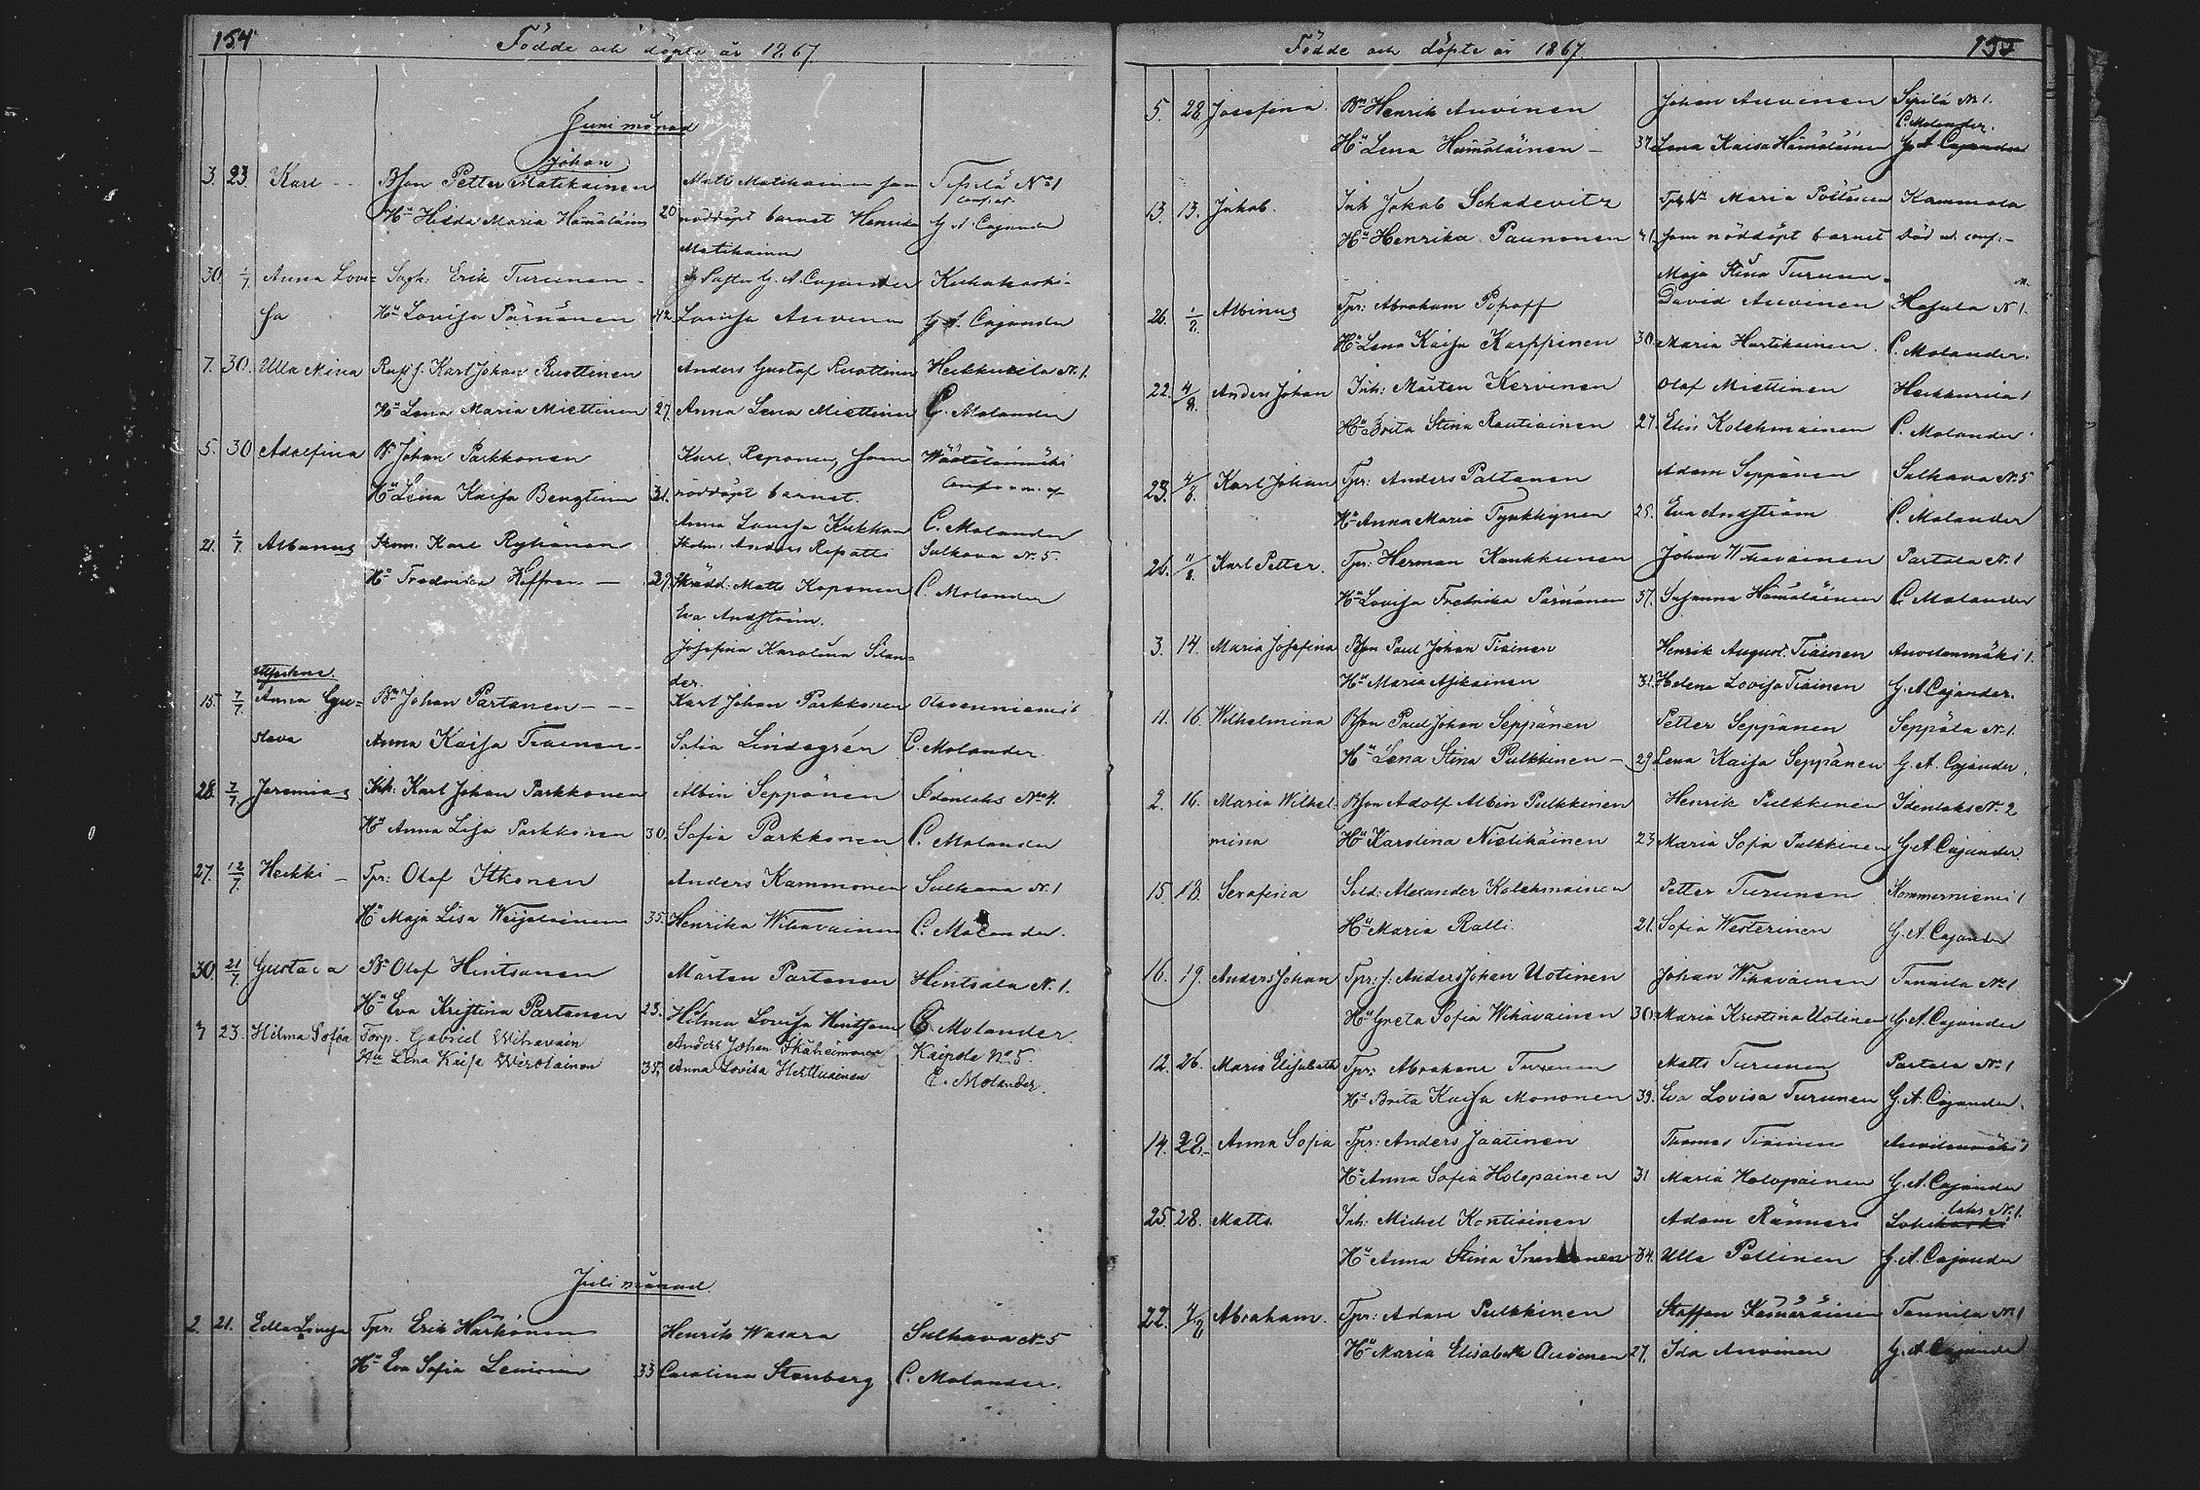 154
Födde och döpte år 1867.
Juni månad
Johan
3. 23. Karl - - Bson Petter Matikainen Matts Matikainen som Tepsilä No 1
Hu Hilda Maria Hämäläinen 20 nöddöpt barnet Henrika conf. af
Matikainen G. A. Cajander
30 1/7. Anna Lovi= Erik Turunen - G. A. Cajander
sa Hu Lovisa Pärnänen 42. Lovisa Auvinen G. A. Cajander
7. 30. Ulla Mina Karl Johan Ruottinen Anders Gustaf Ruottinen Heikkurila N. 1.
Hu Lena Maria Miettinen 27. Anna Lena Miettinen C. Molander
5. 30 Adolfina Bn Johan Parkkonen Karl Reponen, som Wäätälänmäki
Hu Lena Kaisa Bengtinen 31. nöddöpt barnet.
Anna Lovisa Kukkon C. Molander
21. 1/7. Albanus Karl Ryhänen Anders Repatti Sulkava N. 5.
Hu Fredrika Hoffren — 29. Skrädd. Matts Koponen C. Molander
Eva Andström.
Josefina Karolina Silan=
der.
15. 7/7. Anna Gu= Bn Johan Partanen - - - Karl Johan Parkkonen
stava Anna Kaisa Tiainen - Sofia Lindegrén C. Molander.
28. 7/7. Jeremias Inh: Karl Johan Parkkonen Albin Seppänen Idenlaks No 4.
Hu Anna Lisa Parkkonen 30. Sofia Parkkonen C. Molander
27. 12/7. Heikki — Tpr: Olof Itkonen Anders Kammonen Sulkava N. 1
Hu Maja Lisa Weijalainen 35. Henrika Wihavainen C. Molander.
30. 21/7. Gustava Bn Olof Hintsanen Mårten Partanen Hintsala N. 1.
Hu Eva Kristina Partanen 23. Hilma Lovisa Hintsanen C. Molander.
7 23. Hilma Sofia Torp. Gabriel Wihavain Anders Johan Ikäheimonen Kaipola No 5.
Hu Lena Kaisa Wirolainen 35. Anna Lovisa Herttuainen C. Molander.
Juli månad
2. 21. Edla Lovisa Tpr: Erik Härkönen Henrik Wasara Sulkava No 5
Hu Eva Sofia Leminen 33 Carolina Stenberg C. Molander.
Födde och döpte år 1867.
155
5. 28. Josefina. Bn Henrik Auvinen Johan Auvinen Sipilä N 1.
C. Molander.
Hu Lena Hämäläinen — 37. Lena Kaisa Hämäläinen G. A. Cajander
13. 13. Jakob. Inh Jakob Schadevitz Maria Pöllänen Kammola
Hu Henrika Paunonen 41. som nöddöpt barnet Död ej conf. -
Maja Stina Turunen.
26. 1/8. Albinus Tpr: Abraham Popoff David Auvinen Hasula N 1.
Hu Lena Kaisa Karppinen 30. Maria Hartikainen. C. Molander.
22. 4/8. Anders Johan Inh: Mårten Kervinen Olof Miettinen Heikkurila 1
Hu Brita Stina Rautiainen 27. Elin Kolehmainen C. Molander
23. 4/8. Karl Johan Tpr: Anders Paltanen Adam Seppänen Sulkava N. 5
Hu Anna Maria Tynkkynen 25. Eva Andström C. Molander
26. 11/8. Karl Petter. Tpr: Herman Kankkunen Johan Wihavainen Partala N. 1
Hu Lovisa Fredrika Pärnänen 37. Susanna Hämäläinen C. Molander
3. 14. Maria Josefina Bson Paul Johan Tiainen Henrik August Tiainen Auvilanmäki 1.
Hu Maria Asikainen 31. Helena Lovisa Tiainen G. A. Cajander.
11. 16. Wilhelmina Bson Paul Johan Seppänen Petter Seppänen Seppälä N. 1.
Hu Lena Stina Pulkkinen — 29. Lena Kaisa Seppänen G. A. Cajander.
2. 16. Maria Wilhel- Bson Adolf Albin Pulkkinen Henrik Pulkkinen Idenlaks N. 2
mina Hu Karolina Nielikäinen 23 Maria Sofia Pulkkinen G. A. Cajander.
15. 18. Serafina Sold: Alexander Kolehmainen Petter Turunen Kommerniemi 1
Hu Maria Ralli. 21. Sofia Westerinen G. A. Cajander
16. 19. Anders Johan Tpr: s. Anders Johan Uotinen Johan Wihavainen Tannila No 1
Hu Greta Sofia Wihavainen 30. Maria Kristina Uotinen G. A. Cajander
12. 26. Maria Elisabeth Tpr: Abraham Turunen Matts Turunen Partala No 1
Hu Brita Kaisa Mononen 39. Eva Lovisa Turunen G. A. Cajander.
14. 28. Anna Sofia Tpr: Anders Jaatinen Thomas Tiainen Auvilanmäki 1
Hu Anna Sofia Holopainen 31 Maria Holopainen G. A. Cajander
25. 28. Matts. Inh: Michel Kontiainen Adam Ränners laks N. 1.
Hu Anna Stina 34. Ulla Pellinen G. A. Cajander
22. 4/8 Abraham. Tpr: Adam Pulkkinen Staffan Kämäräinen Tannila N. 1
Hu Maria Elisabeth Auvinen 27. Ida Auvinen G. A. Cajander